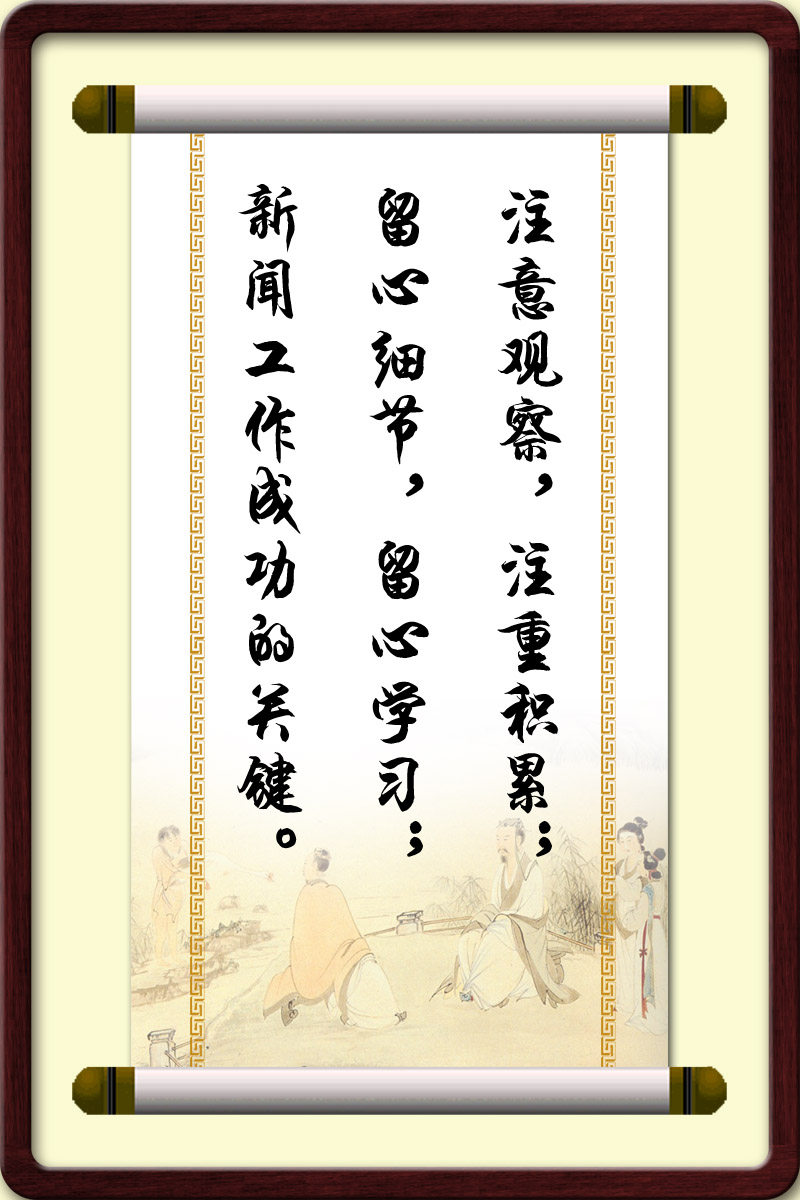 注意观察，注重积累；
留心细节，留心学习；
新闻工作成功的关键。